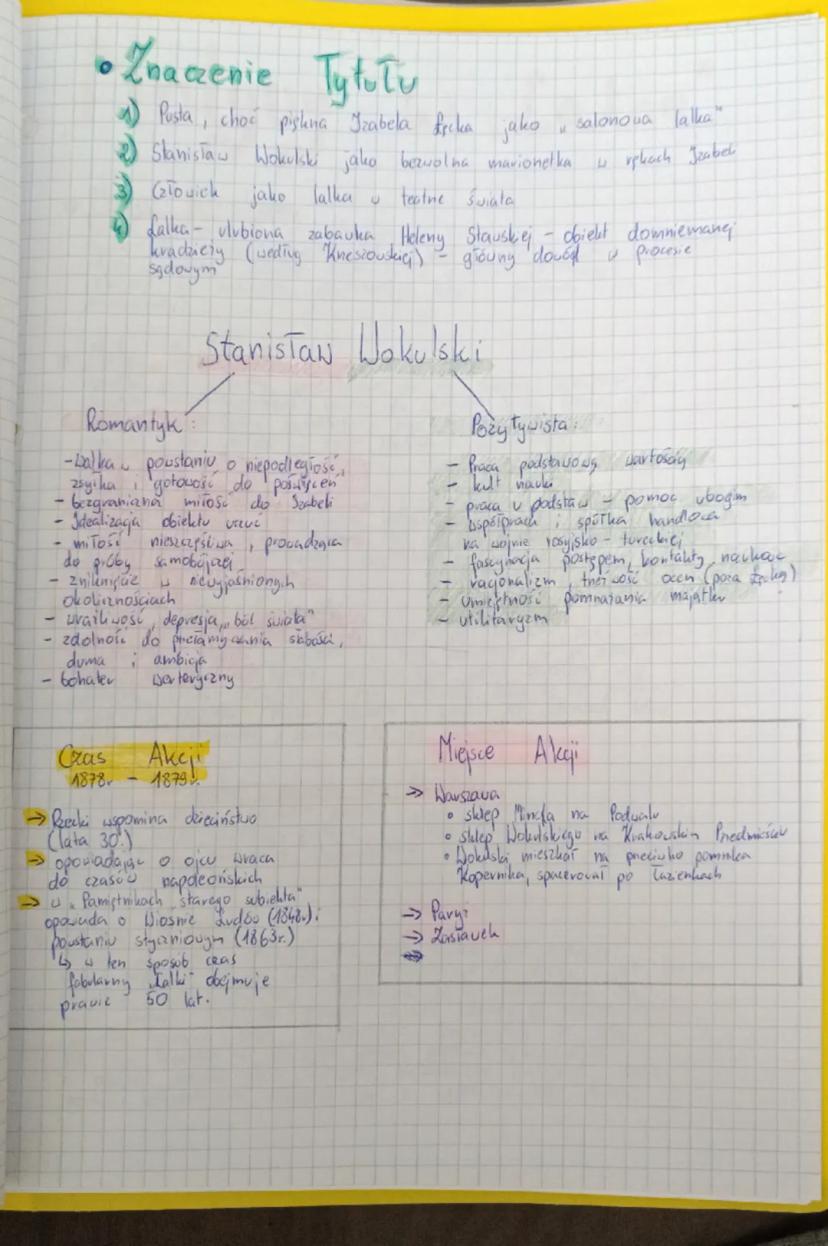 • Znaczenie Tytułu
1) Pusta, choć piękna Izabela Łęcka jako „salonowa lalka"
2) Stanisław Wokulski jako bezwolna marionetka w rękach Izabeli
3) Człowiek jako lalka w teatrze świata
4) Lalka - ulubiona zabawka Heleny Stawskiej - obiekt domniemanej
kradzieży (według Krzeszowskiej) - główny dowód w procesie
sądowym
Stanisław Wokulski
Romantyk:
- Walka w powstaniu o niepodległość,
zsyłka i gotowość do poświęceń
- bezgraniczna miłość do Izabeli
- Idealizacja obiektu uczuć
- miłość nieszczęśliwa, prowadząca
do próby samobójczej
- zniknięcie w niewyjaśnionych
okolicznościach
- wrażliwość, depresja, „ból świata"
- zdolność do przełamywania słabości,
duma i ambicja
- bohater werteryczny
Pozytywista:
- Praca podstawową wartością
- kult nauki
- praca u podstaw - pomoc ubogim
- współpraca i spółka handlowa
na wojnie rosyjsko - tureckiej
- fascynacja postępem, kontakty naukowe
- racjonalizm, trzeźwość ocen (poza Łęcką)
- umiejętność pomnażania majątku
- utilitaryzm
Czas Akcji
1878r. - 1879r.
→ Rzecki wspomina dzieciństwo
(lata 30.)
→ opowiadając o ojcu wraca
do czasów napoleońskich
→ w „Pamiętnikach starego subiekta"
opowiada o Wiośnie Ludów (1848r.) i
powstaniu styczniowym (1863r.)
↳ w ten sposób czas
fabularny „Lalki" obejmuje
prawie 50 lat.
Miejsce Akcji
→ Warszawa
• sklep Mincla na Podwalu
• sklep Wokulskiego na Krakowskim Przedmieściu
• Wokulski mieszkał na przeciwko pomnika
Kopernika, spacerował po Łazienkach
→ Paryż
→ Zasławek